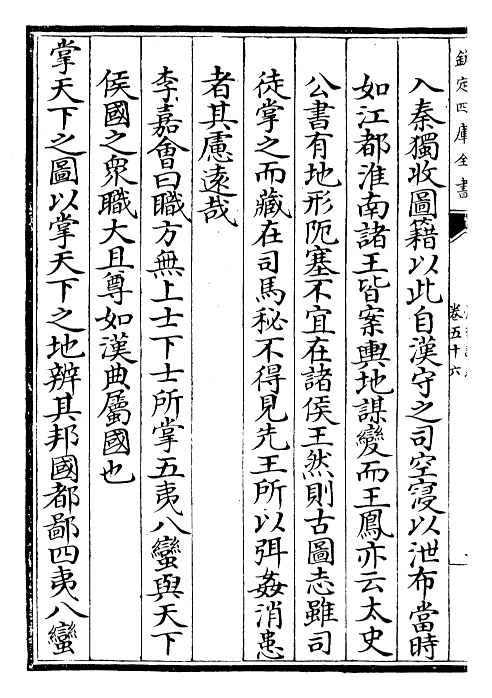 欽定四庫全書
卷五十六
入秦獨收圖籍以此自漢守之司空寖以泄布當時
如江都淮南諸王皆案輿地謀變而王鳳亦云太史
公書有地形阨塞不宜在諸侯王然則古圖志雖司
徒掌之而藏在司馬秘不得見先王所以弭姦消患
者其慮遠哉
李嘉會曰職方無上士下士所掌五夷八蠻與天下
侯國之衆職大且尊如漢典屬國也
掌天下之圖以掌天下之地辨其邦國都鄙四夷八蠻